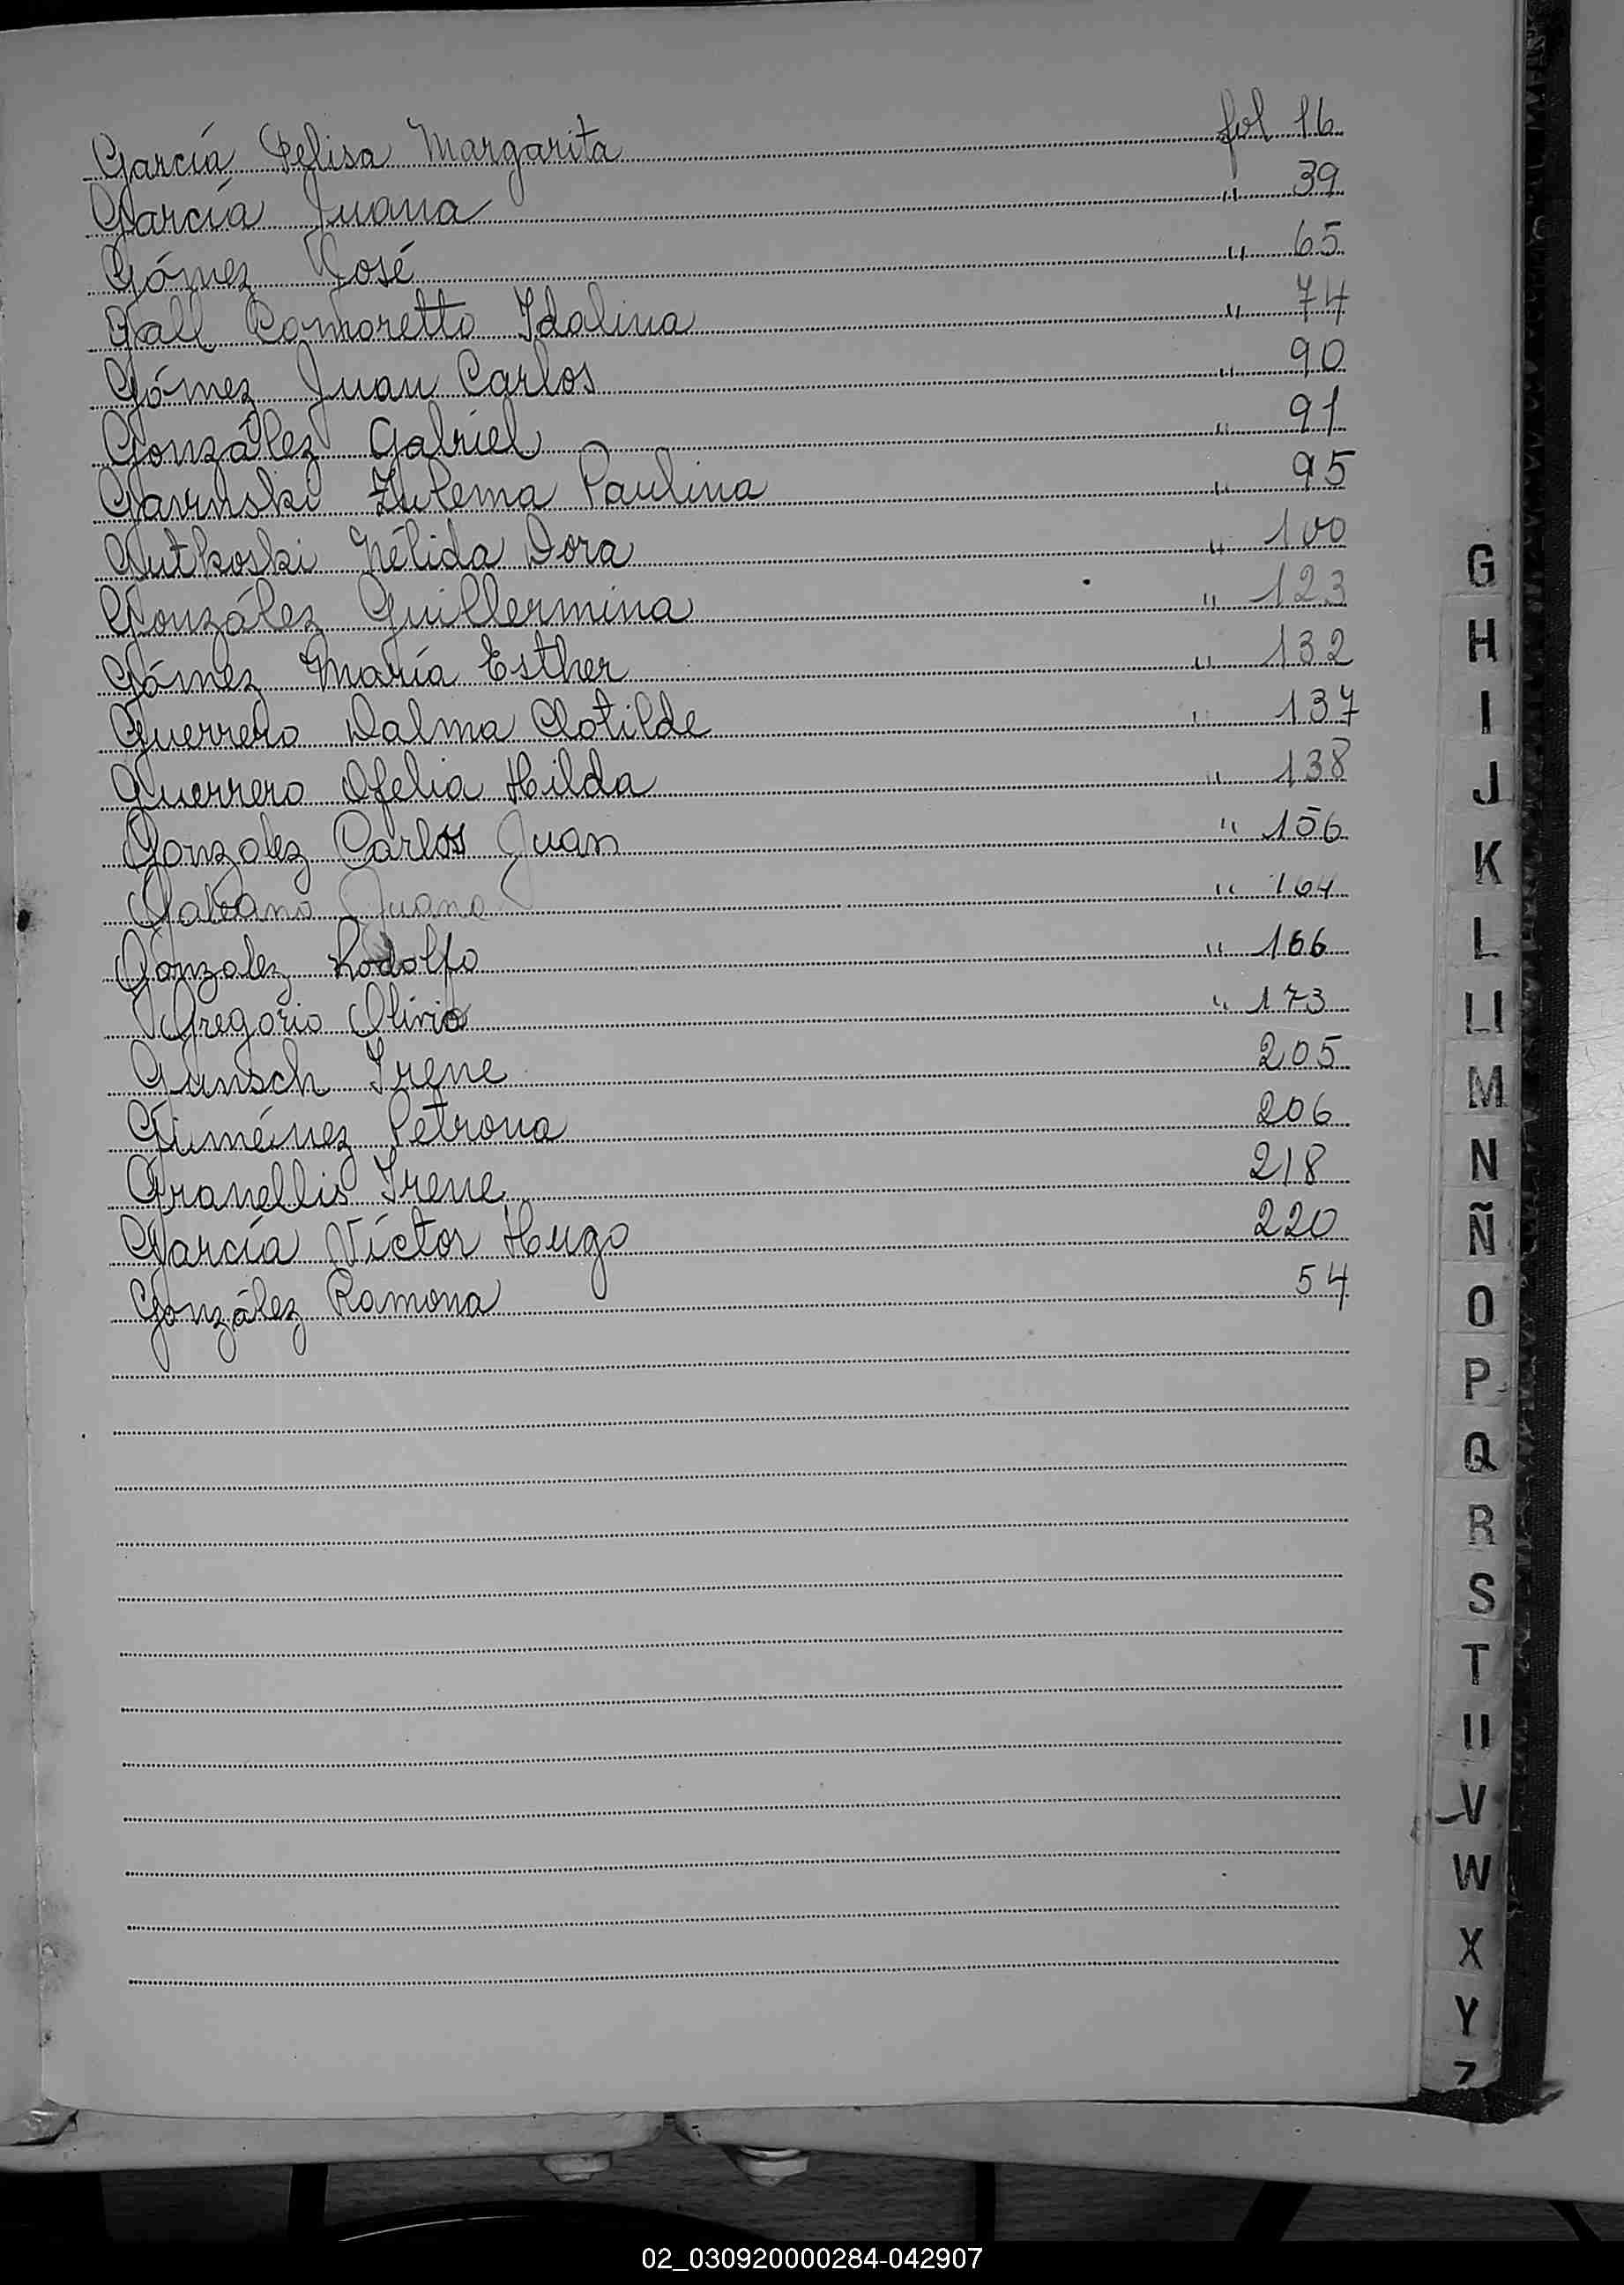 García Felisa Margarita fol 16
García Juana " 39
Gómez José " 65
Gall Comoretto Idalina " 74
Gómez Juan Carlos " 90
González Gabriel " 91
Gavinski Zulema Paulina " 95
Gutkoski Nélida Dora " 100
González Guillermina " 123
Gómez María Esther " 132
Guerrero Dalma Clotilde " 137
Guerrero Ofelia Hilda " 138
Gonzalez Carlos Juan " 156
Galeano Juana " 164
Gonzalez Rodolfo " 166
Gregorio Olivio " 173
Gunsch Irene 205
Giménez Petrona 206
Granellis Irene 218
García Víctor Hugo 220
González Ramona 54
G
H
I
J
K
L
Ll
M
N
Ñ
O
P
Q
R
S
T
U
V
W
X
Y
Z
02_030920000284-042907